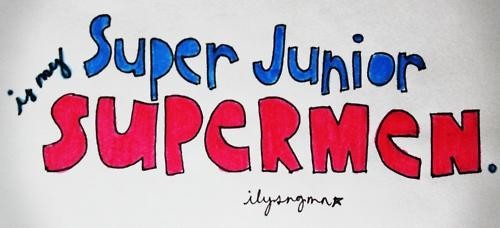 Super Junior
is my
SUPERMEN.
ilysngmn